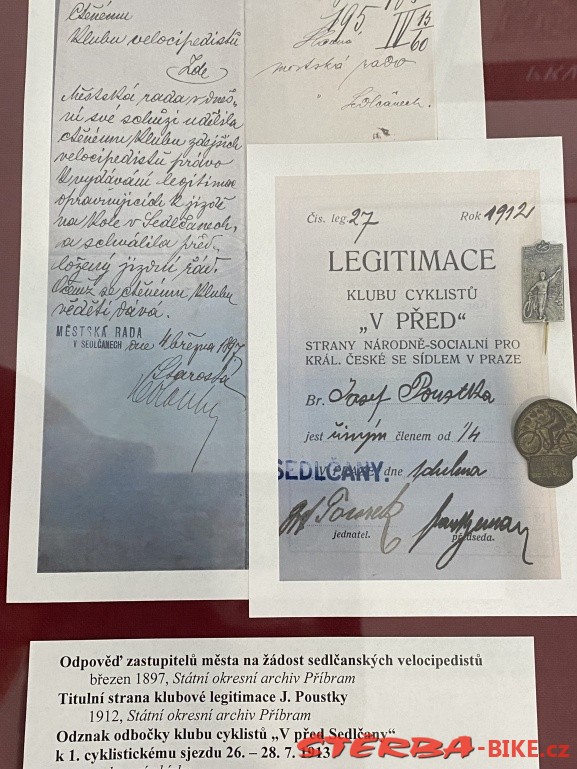 Ctěnému
Klubu velocipedistů
Zde
Městská rada v dneš-
ní své schůzi udělila
ctěnému klubu zdejších
velocipedistů právo
k vydávání legitimac
opravňujících k jízdě
na kole v Sedlčanech,
a schválila před-
ložený jízdní řád.
Očemž se ctěnému klubu
věděti dává.
MĚSTSKÁ RADA
V SEDLČANECH dne 4 března 1897.
Starosta
195 IV 13
60
městská rada
v Sedlčanech.
Čís. leg. 27 Rok 1912
LEGITIMACE
KLUBU CYKLISTŮ
„V PŘED“
STRANY NÁRODNĚ-SOCIALNÍ PRO
KRÁL. ČESKÉ SE SÍDLEM V PRAZE
Br. Josef Poustka
jest činným členem od 1/4
SEDLČANY.
V PRAZE dne
jednatel. předseda.
Odpověď zastupitelů města na žádost sedlčanských velocipedistů
březen 1897, Státní okresní archiv Příbram
Titulní strana klubové legitimace J. Poustky
1912, Státní okresní archiv Příbram
Odznak odbočky klubu cyklistů „V před Sedlčany“
k 1. cyklistickému sjezdu 26. – 28. 7. 1913
STERBA-BIKE.cz